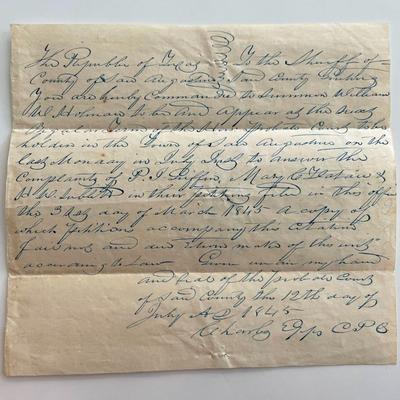 The Republic of Texas To the Sheriff of
County of San Augustine said County Greeting
You are hereby Commanded to summon William
W. Holman to be and appear at the next
Regular Term of the Hon Probate Court to be
holden in the Town of San Augustine on the
last Monday in July Inst to answer the
Complaint of P. I. Mary C. &
H. W. Sublett in their petition filed in this office
the 31st day of March 1845 A copy of
which Petition accompany this citation
fail not and due return make of this writ
according to Law Given under my hand
and seal of the Probate Court
of said County this 12th day of
July A D 1845
Charles Epps C P C